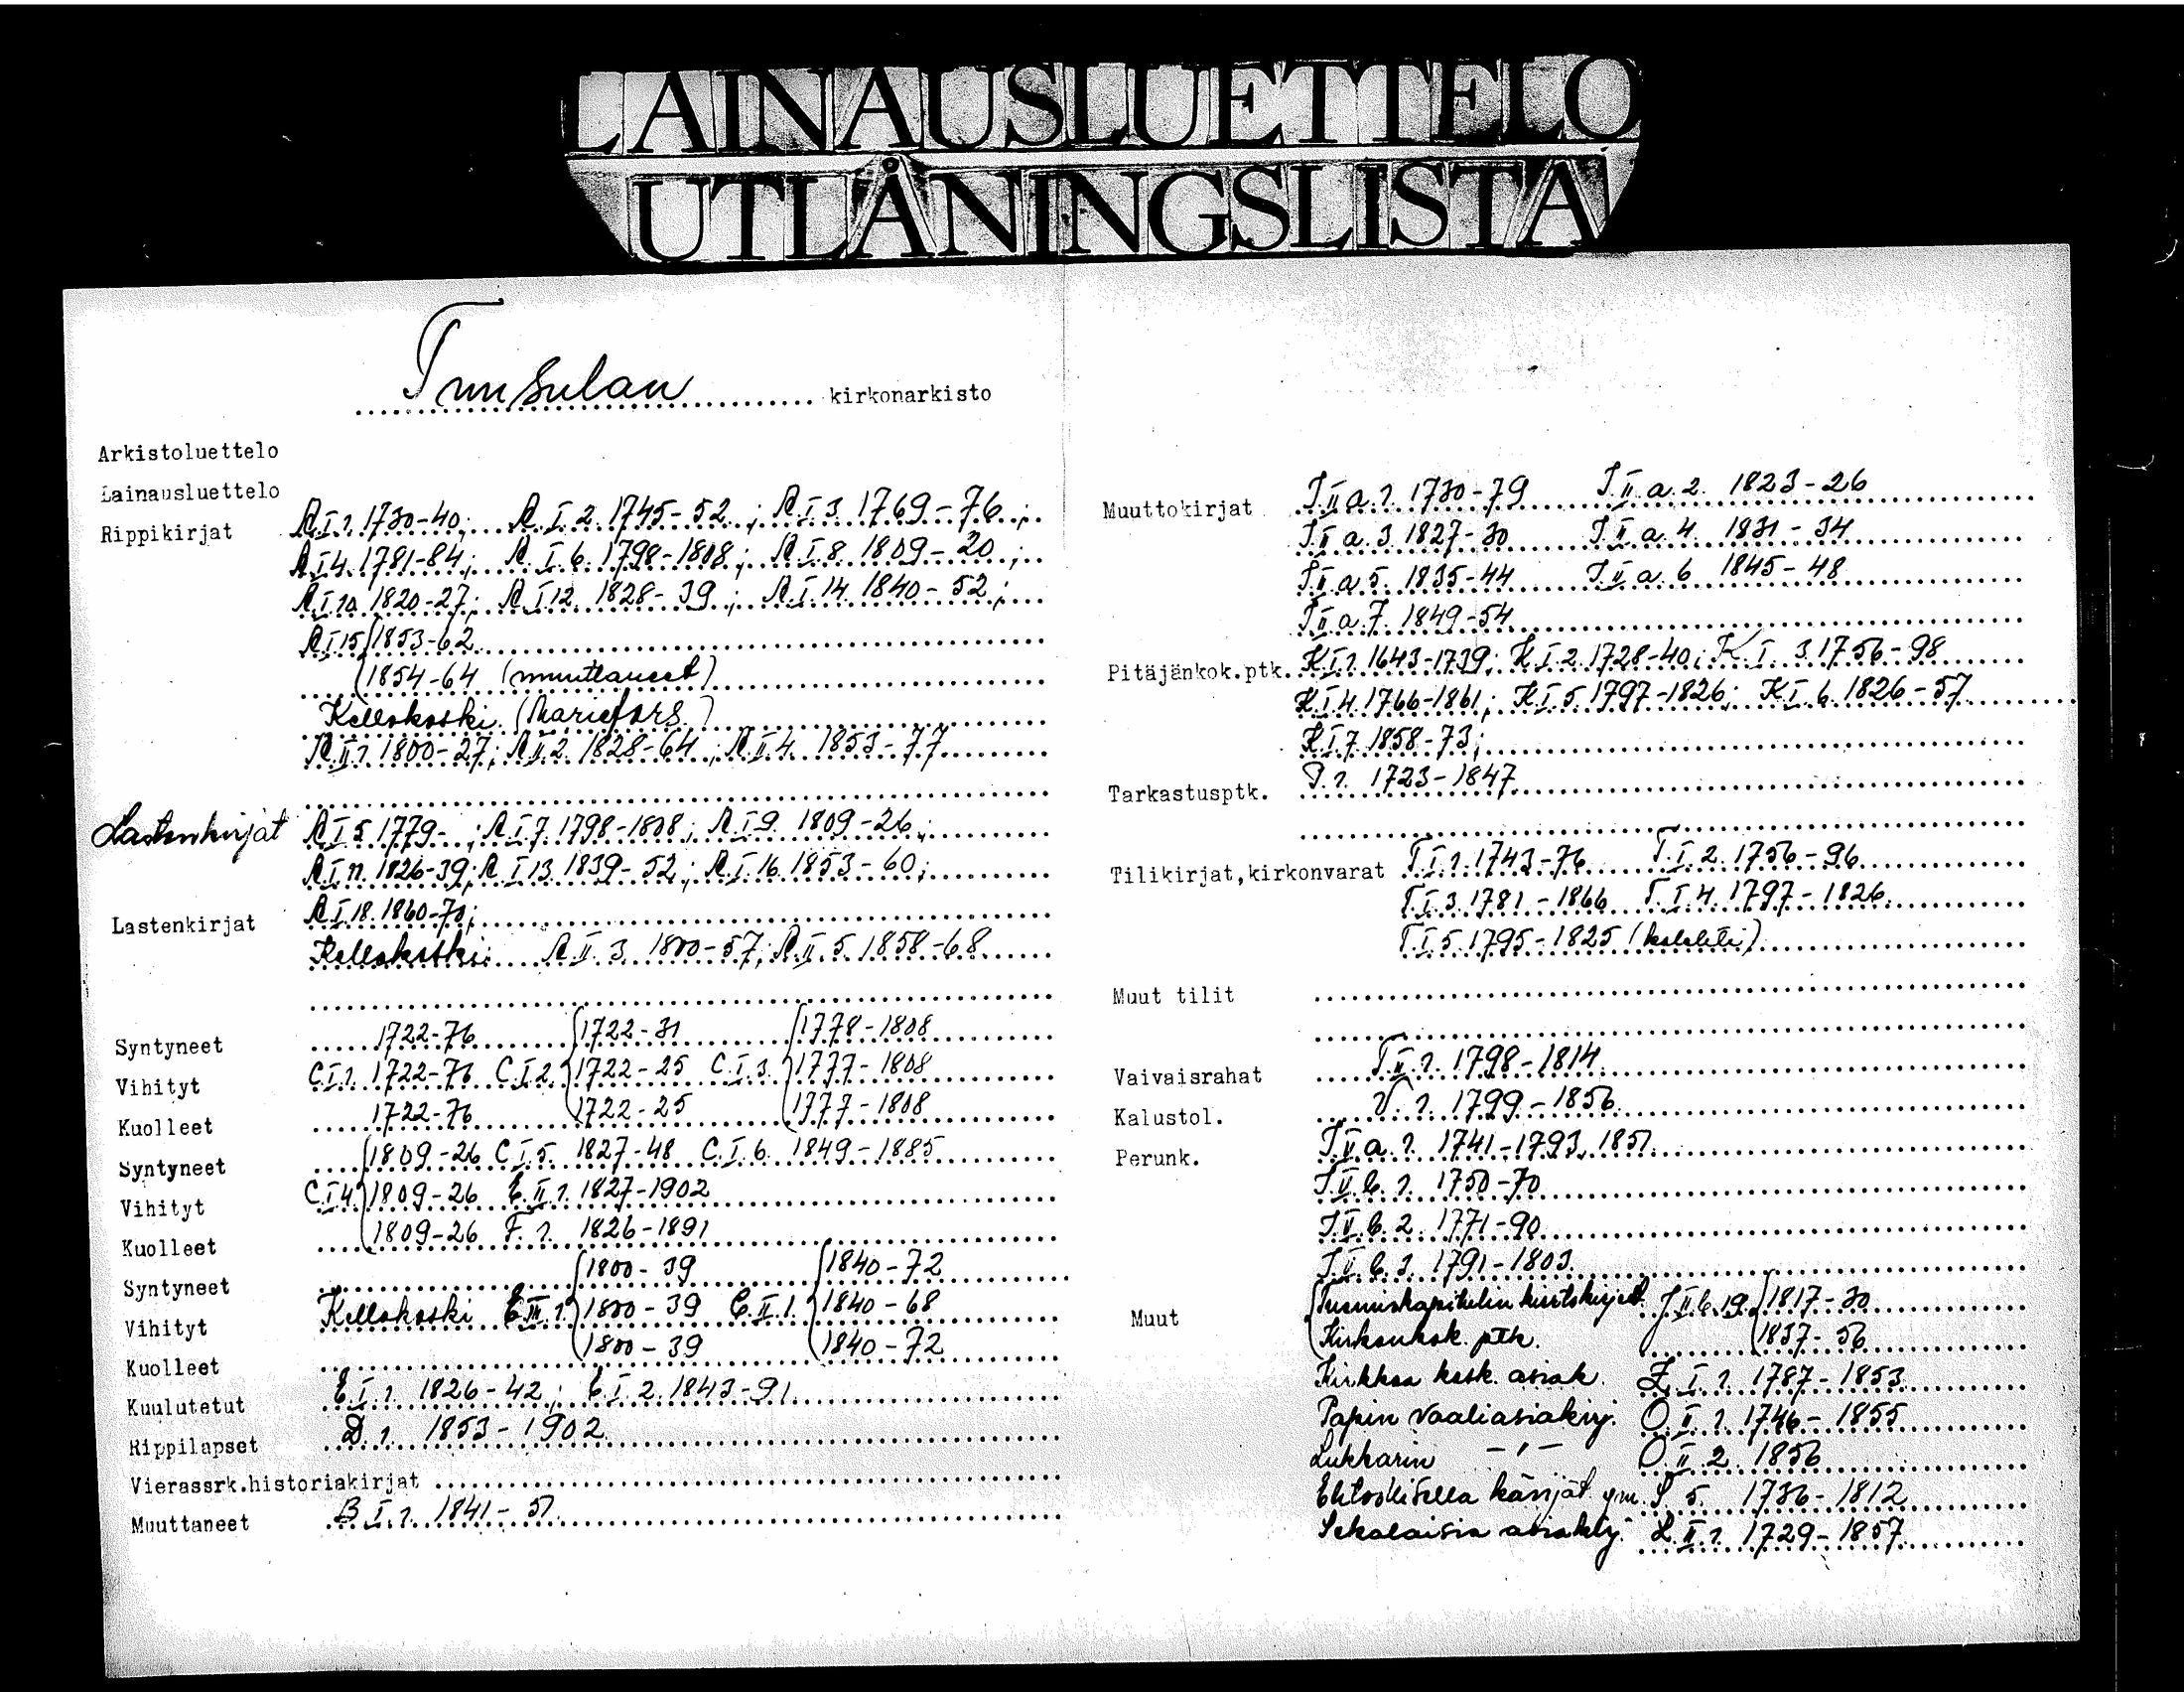 LAINAUSLUETTELO
UTLÅNINGSLISTA
Tuusulan kirkonarkisto
Arkistoluettelo
Lainausluettelo
Rippikirjat A I 1. 1730-40; A. I 2. 1745-52; A I 3. 1769-76;
A I 4. 1781-84; A. I. 6. 1798-1808; A I. 8. 1809-20;
A. I. 10. 1820-27; A. I 12. 1828-39; A I 14. 1840-52;
A I 15 1853-62
1854-64 (muuttaneet)
Kellokoski (Mariefors)
A. II. 1. 1800-27; A II. 2. 1828-64; A II 4. 1853-77
Lastenkirjat A I 5. 1779- ; A I 7. 1798-1808; A I 9. 1809-26;
A I. 11. 1826-39; A I 13. 1839-52; A. I. 16. 1853-60;
Lastenkirjat A I. 18. 1860-70;
Kellokoski A. II. 3. 1800-57; A II. 5. 1858-68
Syntyneet 1722-76 1722-31 1778-1808
Vihityt C I 1. 1722-76 C I 2. 1722-25 C. I. 3. 1777-1808
Kuolleet 1722-76 1722-25 1777-1808
Syntyneet 1809-26 C I 5. 1827-48 C. I. 6. 1849-1885
Vihityt C. I 4 1809-26 E. II. 1. 1827-1902
Kuolleet 1809-26 F. 1. 1826-1891
Syntyneet 1800-39 1840-72
Vihityt Kellokoski C III. 1. 1800-39 C. II. 1. 1840-68
Kuolleet 1800-39 1840-72
Kuulutetut E. I. 1. 1826-42; E. I. 2. 1843-91
Rippilapset D. 1. 1853-1902
Vierassrk.historiakirjat
Muuttaneet B. I. 1. 1841-51
Muuttokirjat J II a. 1. 1730-79 J. II. a. 2. 1823-26
J II a. 3. 1827-30 J. II a. 4. 1831-34
J II a 5. 1835-44 J. II a. 6. 1845-48
J II a 7. 1849-54
Pitäjänkok.ptk. K I 1. 1643-1739; K I 2. 1728-40; K I. 3. 1756-98
K I 4. 1766-1861; K I 5. 1797-1826; K I 6. 1826-57
K I 7. 1858-73;
Tarkastusptk. P. 1. 1723-1847
Tilikirjat,kirkonvarat T. I 1. 1743-76 T. I. 2. 1756-96
T. I. 3. 1781-1866 T. I. 4. 1797-1826
T. I. 5. 1795-1825 (kolehti)
Muut tilit
Vaivaisrahat T. II. 1. 1798-1814
Kalustol. V. 1. 1799-1856
Perunk. J V a. 1. 1741-1793, 1851
J V b. 1. 1750-70
J. V. b. 2. 1771-90
J. V. b. 3. 1791-1803
Muut Tuomiokapitulin kiertokirjeet J II b. 19. 1817-30
Kirkonkok. ptk. 1837-56
Kirkkoa kosk. asiak. Z. I. 1. 1787-1853
Papin vaaliasiakirj. O. II. 1. 1746-1855
Lukkarin -"- O. II. 2. 1856
Ehtoollisella kävijät ym. S. 5. 1786-1812
Sekalaisia asiakirj. Z. II. 1. 1729-1857